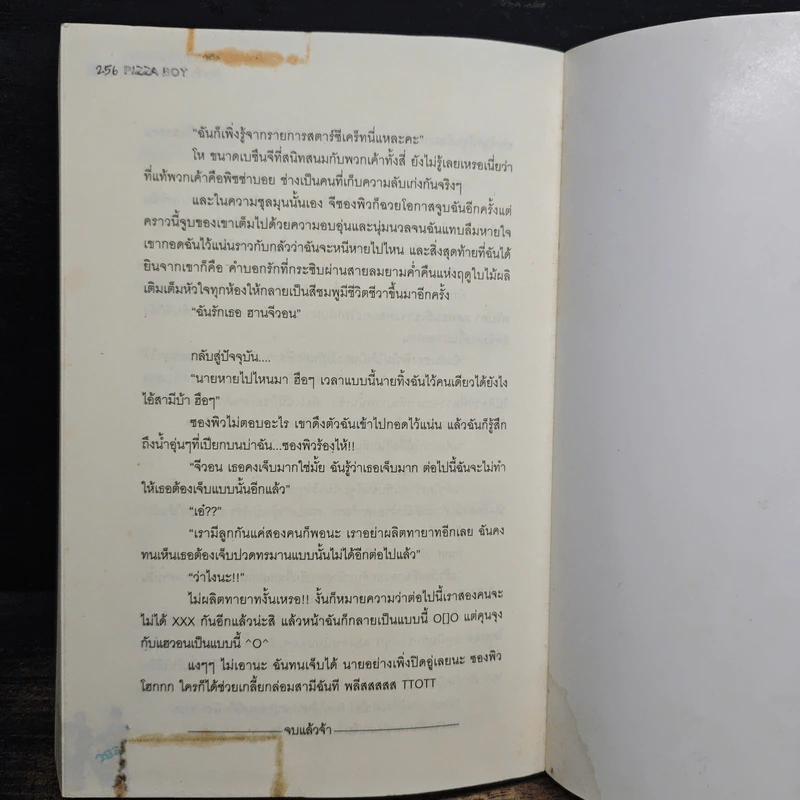 256 PIZZA BOY
"ฉันก็เพิ่งรู้จากรายการสตาร์ซีเคร็ทนี่แหละคะ"
โห ขนาดเบซึนจีที่สนิทสนมกับพวกเค้าทั้งสี่ ยังไม่รู้เลยเหรอเนี่ยว่า
ที่แท้พวกเค้าคือพิซซ่าบอย ช่างเป็นคนที่เก็บความลับเก่งกันจริงๆ
และในความชุลมุนนั้นเอง จีซองพิวก็ฉวยโอกาสจูบฉันอีกครั้งแต่
คราวนี้จูบของเขาเต็มไปด้วยความอบอุ่นและนุ่มนวลจนฉันแทบลืมหายใจ
เขากอดฉันไว้แน่นราวกับกลัวว่าฉันจะหนีหายไปไหน และสิ่งสุดท้ายที่ฉันได้
ยินจากเขาก็คือ คำบอกรักที่กระซิบผ่านสายลมยามค่ำคืนแห่งฤดูใบไม้ผลิ
เติมเต็มหัวใจทุกห้องให้กลายเป็นสีชมพูมีชีวิตชีวาขึ้นมาอีกครั้ง
"ฉันรักเธอ ฮานจีวอน"
กลับสู่ปัจจุบัน....
"นายหายไปไหนมา ฮือๆ เวลาแบบนี้นายทิ้งฉันไว้คนเดียวได้ยังไง
ไอ้สามีบ้า ฮือๆ"
ซองพิวไม่ตอบอะไร เขาดึงตัวฉันเข้าไปกอดไว้แน่น แล้วฉันก็รู้สึก
ถึงน้ำอุ่นๆที่เปียกบนบ่าฉัน...ซองพิวร้องไห้!!
"จีวอน เธอคงเจ็บมากใช่มั้ย ฉันรู้ว่าเธอเจ็บมาก ต่อไปนี้ฉันจะไม่ทำ
ให้เธอต้องเจ็บแบบนั้นอีกแล้ว"
"เอ๋??"
"เรามีลูกกันแค่สองคนก็พอนะ เราอย่าผลิตทายาทอีกเลย ฉันคง
ทนเห็นเธอต้องเจ็บปวดทรมานแบบนั้นไม่ได้อีกต่อไปแล้ว"
"ว่าไงนะ!!"
ไม่ผลิตทายาทงั้นเหรอ!! งั้นก็หมายความว่าต่อไปนี้เราสองคนจะ
ไม่ได้ XXX กันอีกแล้วน่ะสิ แล้วหน้าฉันก็กลายเป็นแบบนี้ O[]O แต่คุนจุง
กับแฮวอนเป็นแบบนี้ ^O^
แงๆๆ ไม่เอานะ ฉันทนเจ็บได้ นายอย่างเพิ่งปิดอู่เลยนะ ซองพิว
โฮกกก ใครก็ได้ช่วยเกลี้ยกล่อมสามีฉันที พลีสสสสส TTOTT
จบแล้วจ้า